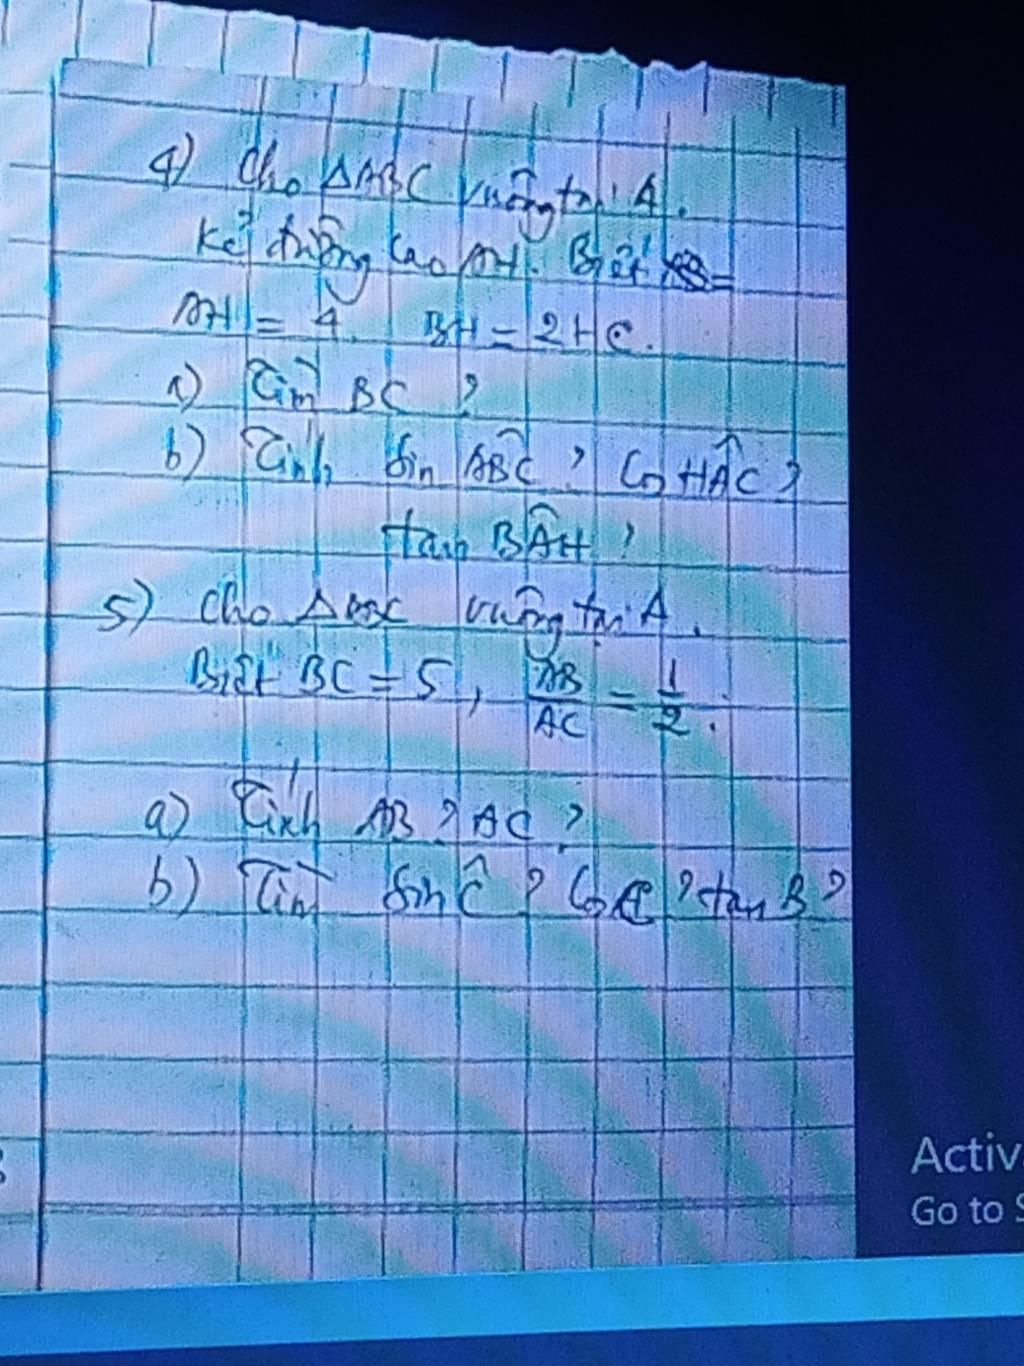 4) Cho ΔABC vuông tại A.
Kẻ đường cao AH. Biết
AH = 4. BH = 2HC.
a) Tìm BC ?
b) Tính sin ABC ? Cos HAC ?
tan BAH ?
5) Cho ΔABC vuông tại A.
Biết BC = 5, AB/AC = 1/2.
a) Tính AB ? AC ?
b) Tìm sin C ? Cos C ? tan B ?
Activ
Go to S